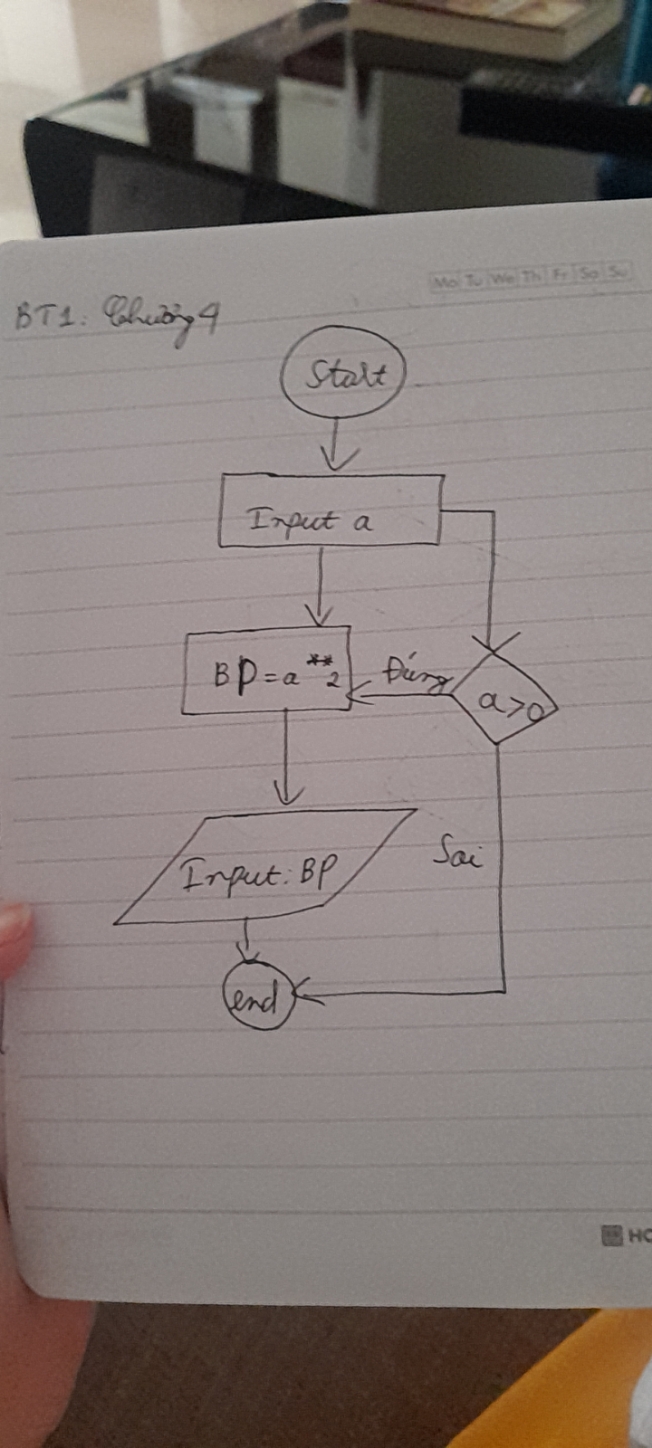 Mo Tu We Th Fr Sa Su
BT1: Chương 4
Start
Input a
BP = a ** 2
Đúng
a > 0
Input: BP
Sai
end
HO